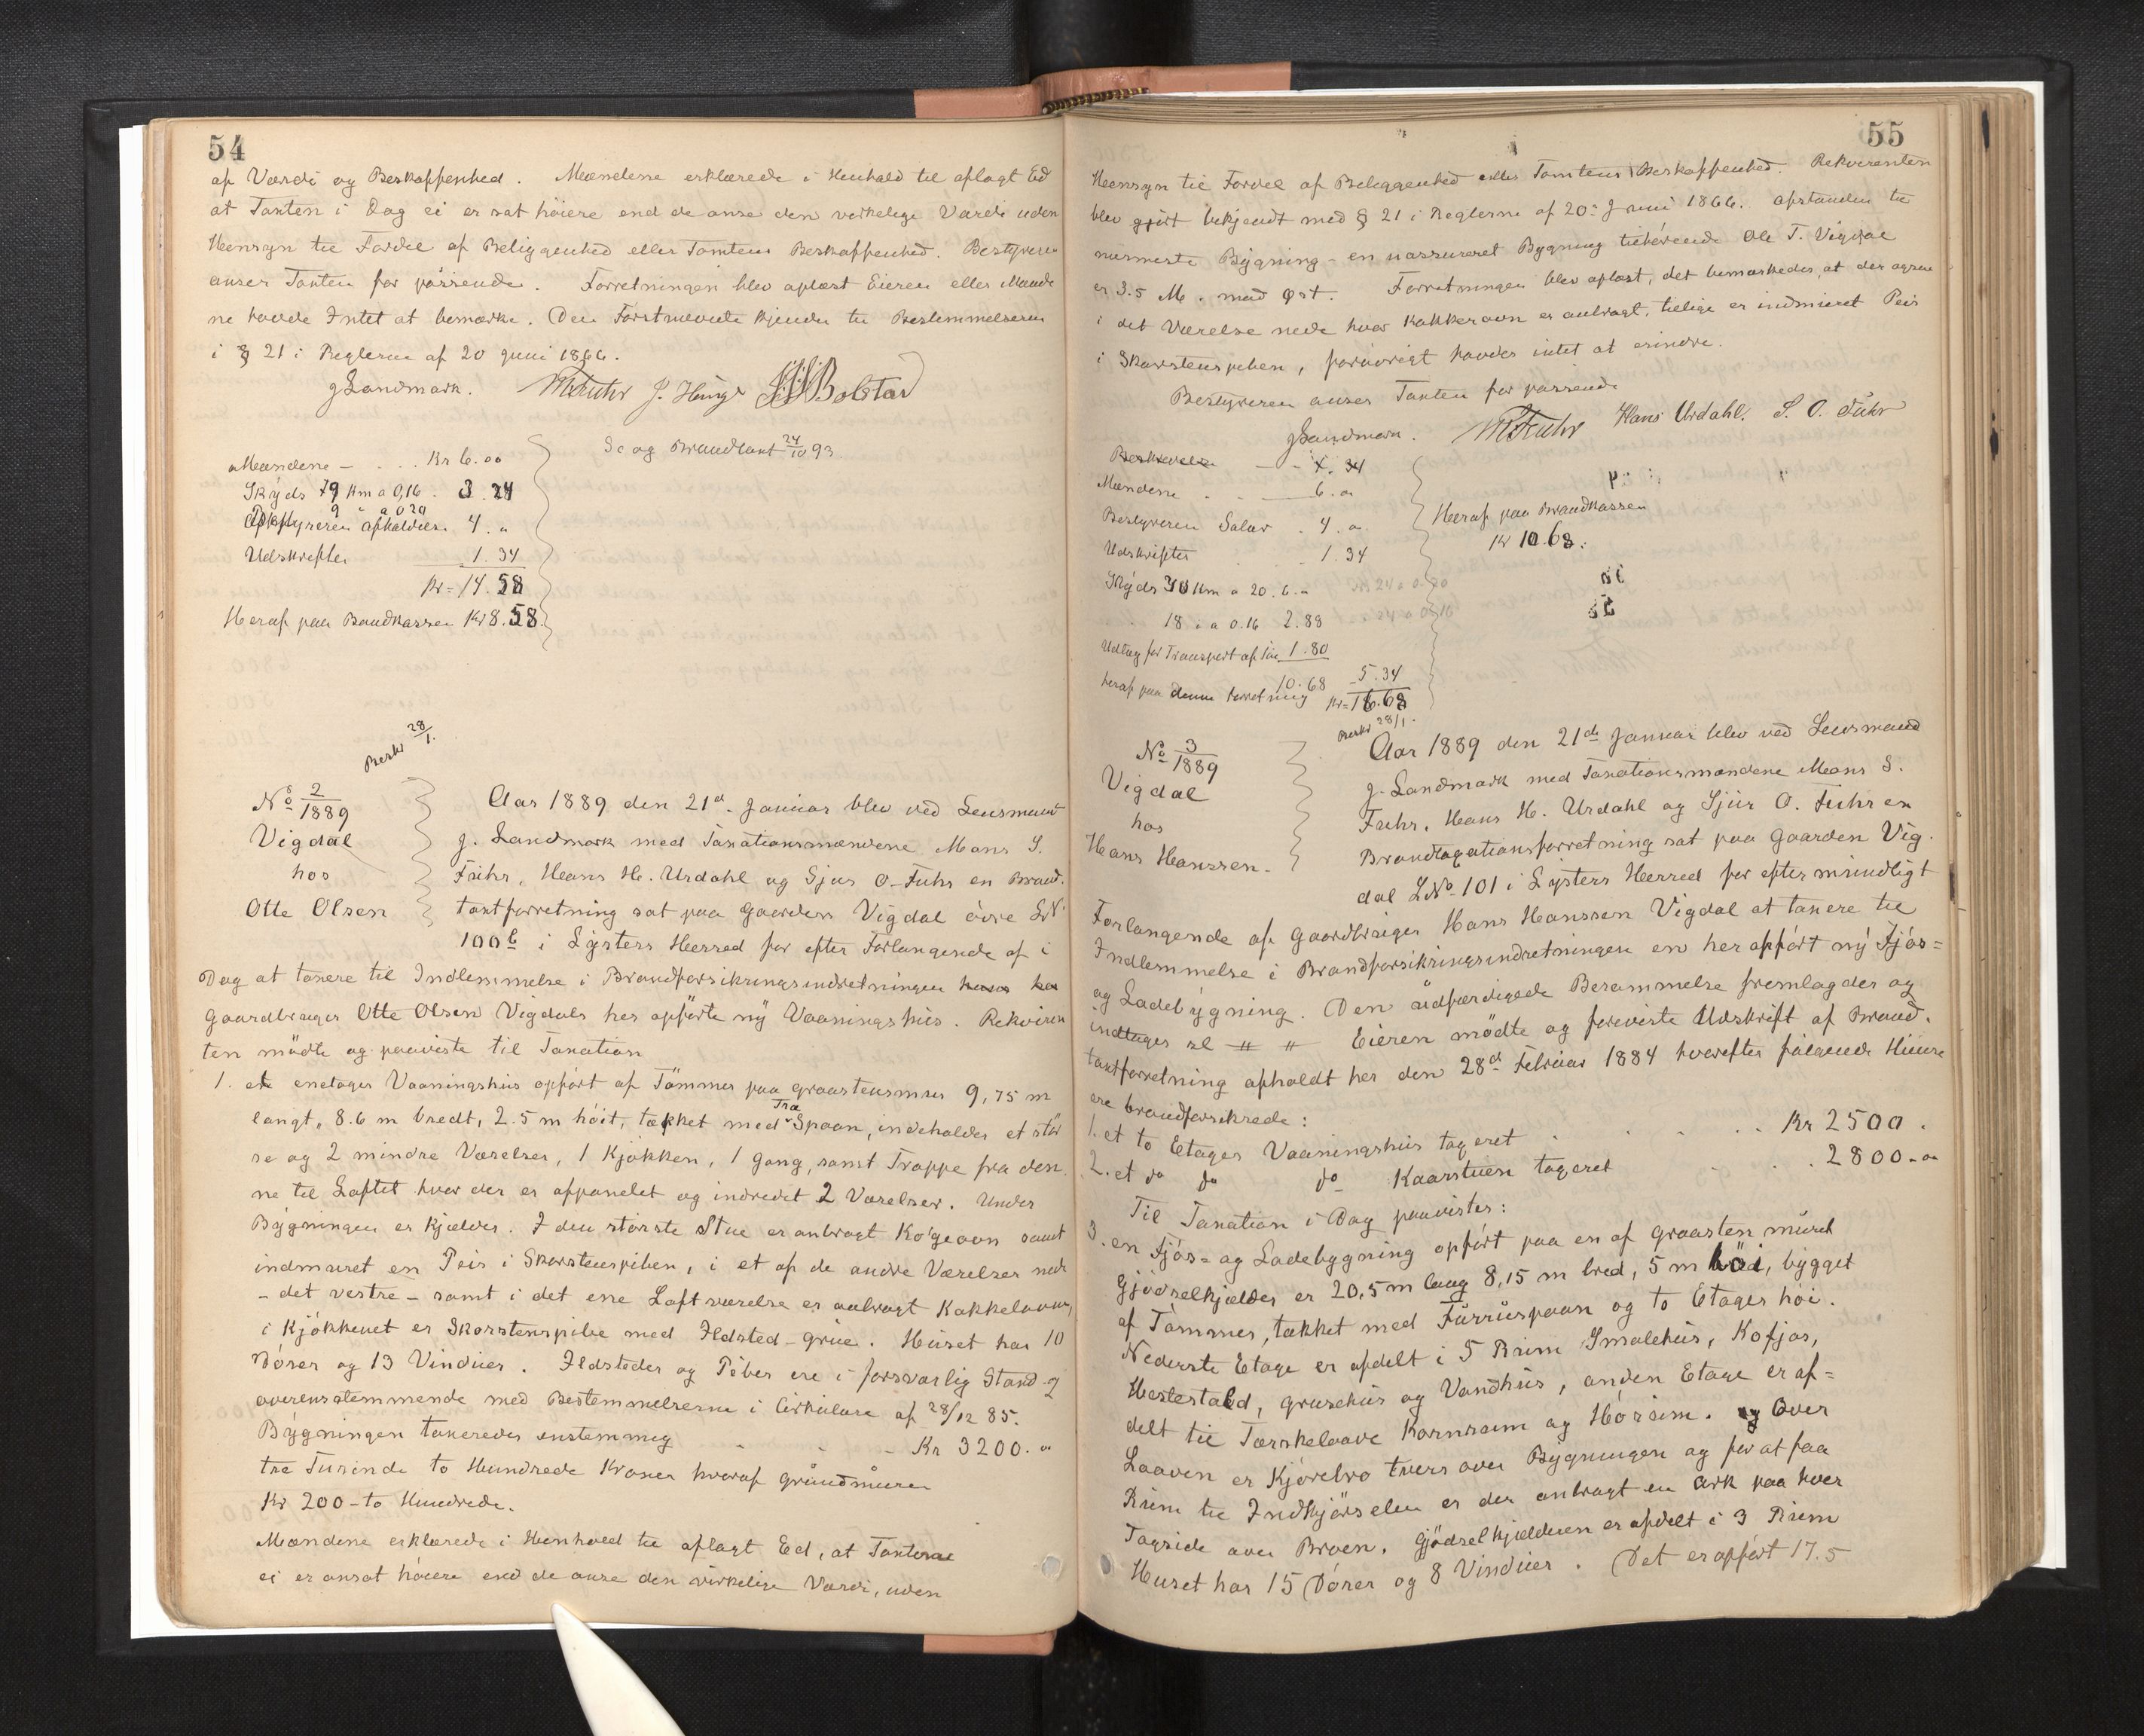 54
af Værdi og Beskaffenhed. Mændene erklærede i Henhold til aflagt Ed
at Taxten i Dag ei er sat höiere end de anse den virkelige Værdi uden
Hensyn til Fordel af Beliggenhed eller Tomtens Beskaffenhed. Bestyreren
anser Taxten for passende. Forretningen blev oplæst Eieren eller Mænde
ne havde Intet at bemærke. Den Förstnævnte kjender til Bestemmelserne
i § 21 i Reglerne af 20 Juni 1866.
J Landmark. MSFuhr J. Hauge Bolstad
Se og Brandtaxt 24/10 93.
Mændene - . . . Kr 6.00
Skyds 79 Km a 0,16 . 3.24
9 " a 0 20
Bestyreren Afholdelsen 4. "
Udskrifter 1.34
Kr = 14.58
Heraf paa Brandkassen Kr 8.58
Besk 28/1.
No 2/1889
Vigdal
hos
Otte Olsen
Aar 1889 den 21d. Januar blev ved Lensmand
J. Landmark med Taxationsmændene Mons S.
Fuhr, Hans H. Urdahl og Sjur O. Fuhr en Brand.
taxtforretning sat paa Gaarden Vigdal övre LNo
100b i Lysters Herred for efter Forlangende af i
Dag at taxere til Indlemmelse i Brandforsikringsindretningen
Gaardbruger Otte Olsen Vigdals her opförte ny Vaaningshus. Rekviren
ten mödte og paaviste til Taxation
1. et enetages Vaaningshus opfört af Tömmer paa Graastensmur 9,75 m
langt, 8.6 m bredt, 2.5 m höit, tækket med Træ Spaan, indeholder et stör
re og 2 mindre Værelser, 1 Kjökken, 1 Gang, samt Trappe fra den
ne til Loftet hvor der er afpanelet og indredet 2 Værelser. Under
Bygningen er Kjælder. I den störste Stue er anbragt Kogeovn samt
indmuret en Peis i Skorstenspiben, i et af de andre Værelser nede
- det vestre - samt i det ene Loftsværelse er anbragt Kakkelovne,
i Kjökkenet er Skorstenspibe med Ildsted - Grue. Huset har 10
Dörer og 13 Vinduer. Ildsteder og Piber ere i forsvarlig Stand
overensstemmende med Bestemmelserne i Cirkulære af 28/12 85.
Bygningen taxeredes enstemmig - - - Kr 3200. "
tre Tusinde to Hundrede Kroner hvoraf Grundmuren
Kr 200 - to Hundrede.
Mændene erklærede i Henhold til aflagt Ed, at Taxterne
ei er ansat höiere end de anse den virkelige Værdi, uden
55
Hensyn til Fordel af Beliggenhed eller Tomtens Beskaffenhed. Rekvirenten
blev gjort bekjendt med § 21 i Reglerne af 20de Juni 1866. Afstanden til
nærmeste Bygning - en uassureret Bygning tilhörende Ole T. Vigdal
er 3.5 M. mod Öst. Forretningen blev oplæst, det bemærkedes, at der ogsaa
i det Værelse nede hvor Kakkelovn er anbragt, tillige er indmuret Peis
i Skorstenspiben, forövrigt havdes intet at erindre.
Bestyreren anser Taxten for passende
J Landmark. MSFuhr Hans Urdahl. S. O. Fuhr
Mændene . . 6. "
Bestyreren Salær . 4. "
Udskrifter 1.34
Skyds 30 Km a 20 . 6. "
18 " a 0.16 2.88
Udlæg for Transport af 1.80
10.68 5.34
heraf paa denne Forretning Kr = 16.68
Heraf paa Brandkassen
Kr 10.68.
Besk 28/1.
No 3/1889
Vigdal
hos
Hans Hanssen.
Aar 1889 den 21de Januar blev ved Lensmand
J. Landmark med Taxationsmændene Mons S.
Fuhr, Hans H. Urdahl og Sjur O. Fuhr en
Brandtaxationsforretning sat paa Gaarden Vig.
dal LNo 101 i Lysters Herred for efter mundligt
Forlangende af Gaardbruger Hans Hanssen Vigdal at taxere til
Indlemmelse i Brandforsikringsindretningen en her opfört ny Fjös=
og Ladebygning. Den udfærdigede Berammelse fremlagdes og
indtages sl # # Eieren mödte og foreviste Udskrift af Brand.
taxtforretning afholdt her den 28d Februar 1884 hvorefter fölgende Huse
ere brandforsikrede:
1. et to Etages Vaaningshus taxeret . . . . Kr 2500.
2. et do do do Kaarstuen taxeret . . . 2800 - "
Til Taxation i Dag paavistes:
3. en Fjös= og Ladebygning opfört paa en af Graasten muret
Gjödselkjælder er 20,5 m lang 8,15 m bred, 5 m höi, bygget
af Tömmer, tækket med Furruspaan og to Etager höi.
Nederste Etage er afdelt i 5 Rum Smalehus, Kofjös,
Hestestald, Grusehus og Vandhus, anden Etage er af=
delt til Tærskelaave Kornrum og Hörum. Over
Laaven er Kjörebro tvers over Bygningen og for at faa
Rum til Indkjörselen er der anbragt en Ark paa hver
Tagside over Broen. Gjödselkjælderen er afdelt i 3 Rum
Huset har 15 Dörer og 8 Vinduer. Det er opfört 17.5